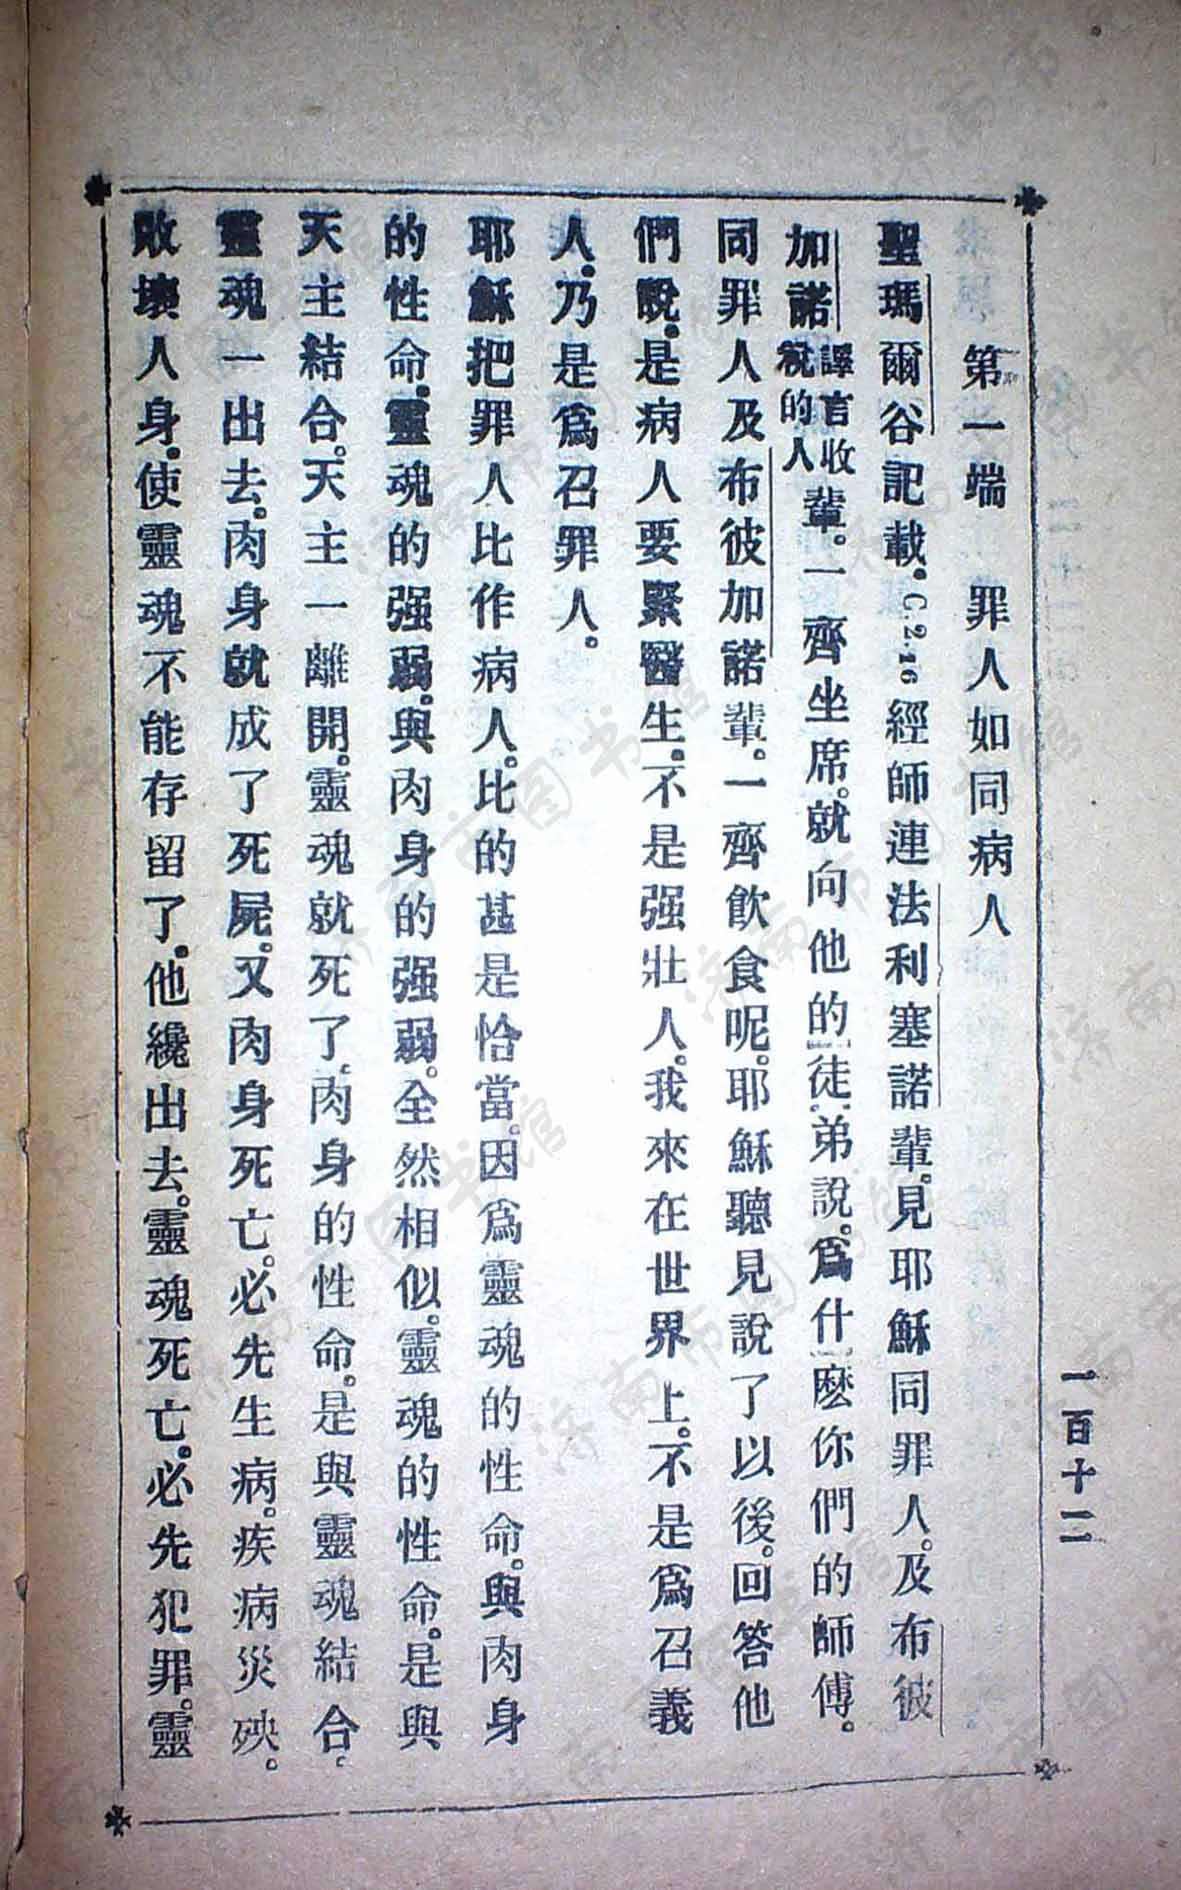 第一端　罪人如同病人
聖瑪爾谷記載。C.2.16經師連法利塞諾輩。見耶穌同罪人。及布彼
加諾譯言收稅的人輩。一齊坐席。就向他的徒弟說。爲什麼你們的師傅。
同罪人及布彼加諾輩。一齊飲食呢。耶穌聽見說了以後。回答他
們說。是病人要緊醫生。不是强壯人。我來在世界上。不是爲召義
人。乃是爲召罪人。
耶穌把罪人比作病人。比的甚是恰當。因爲靈魂的性命。與肉身
的性命。靈魂的强弱。與肉身的强弱。全然相似。靈魂的性命。是與
天主結合。天主一離開。靈魂就死了。肉身的性命。是與靈魂結合。
靈魂一出去。肉身就成了死屍。又肉身死亡。必先生病。疾病災殃。
敗壞人身。使靈魂不能存留了。他纔出去。靈魂死亡。必先犯罪。靈
一百十二
济南市图书馆